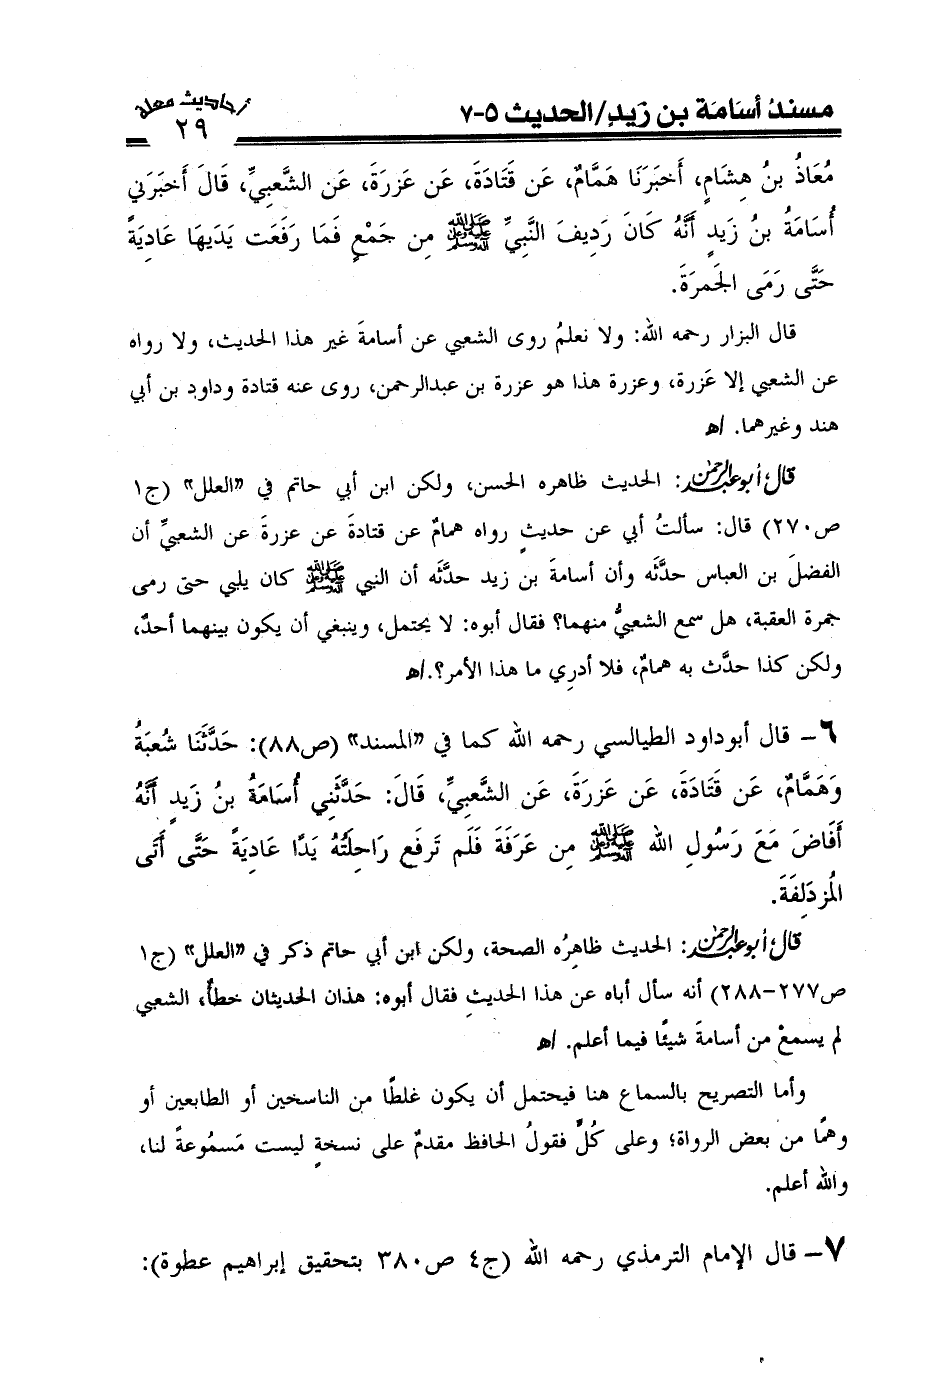 مسندُ أسَامَة بن زَيدٍ/الحديث ٥-٧
أحاديث معلة
٢٩
مُعَاذُ بنُ هِشَامٍ، أَخبَرَنَا هَمَّامٌ، عَن قَتَادَةَ، عَن عَزرَةَ، عَن الشَّعبِيِّ، قَالَ أَخبَرَني
أُسَامَةُ بنُ زَيدٍ أَنَّهُ كَانَ رَدِيفَ النَّبِيِّ ﷺ مِن جَمْعٍ فَمَا رَفَعَت يَدَيهَا عَادِيَةً
حَتَّى رَمَى الجَمرَةَ.
قال البزار رحمه الله: ولا نعلمُ روى الشعبي عن أسامةَ غير هذا الحديث، ولا رواه
عن الشعبي إلا عَزرة، وعزرة هذا هو عزرة بن عبدالرحمن، روى عنه قتادة وداود بن أبي
هند وغيرهما. اﻫ
قال أبو عبدالرحمن: الحديث ظاهره الحسن، ولكن ابن أبي حاتم في «العلل» (ج١
ص٢٧٠) قال: سألتُ أبي عن حديثٍ رواه همامٌ عن قتادةَ عن عزرةَ عن الشعبيِّ أن
الفضلَ بن العباس حدَّثَه وأن أسامةَ بن زيد حدَّثَه أن النبي ﷺ كان يلبي حتى رمى
جمرة العقبة، هل سمع الشعبيُّ منهما؟ فقال أبوه: لا يحتمل، وينبغي أن يكون بينهما أحدٌ،
ولكن كذا حدَّث به همامٌ، فلا أدرِي ما هذا الأمر؟.اﻫ
٦- قال أبوداود الطيالسي رحمه الله كما في «المسند» (ص٨٨): حَدَّثَنَا شُعبَةُ
وَهَمَّامٌ، عَن قَتَادَةَ، عَن عَزرَةَ، عَن الشَّعبِيِّ، قَالَ: حَدَّثَنِي أُسَامَةُ بنُ زَيدٍ أَنَّهُ
أَفَاضَ مَعَ رَسُولِ الله ﷺ مِن عَرَفَةَ فَلَم تَرفَع رَاحِلَتُهُ يَدًا عَادِيَةً حَتَّى أَتَى
المُزدَلِفَةَ.
قال أبو عبدالرحمن: الحديث ظاهِرُه الصحة، ولكن ابن أبي حاتم ذكر في «العلل» (ج١
ص٢٧٧-٢٨٨) أنه سأل أباه عن هذا الحديثِ فقال أبوه: هذان الحديثان خطأٌ، الشعبي
لم يسمعْ من أسامةَ شيئًا فيما أعلم. اﻫ
وأما التصريح بالسماع هنا فيحتمل أن يكون غلطًا من الناسخين أو الطابعين أو
وهمًا من بعض الرواة؛ وعلى كُلٍّ فقولُ الحافظ مقدمٌ على نسخةٍ ليست مَسمُوعةً لنا،
والله أعلم.
٧- قال الإمام الترمذي رحمه الله (ج٤ ص٣٨٠ بتحقيق إبراهيم عطوة):